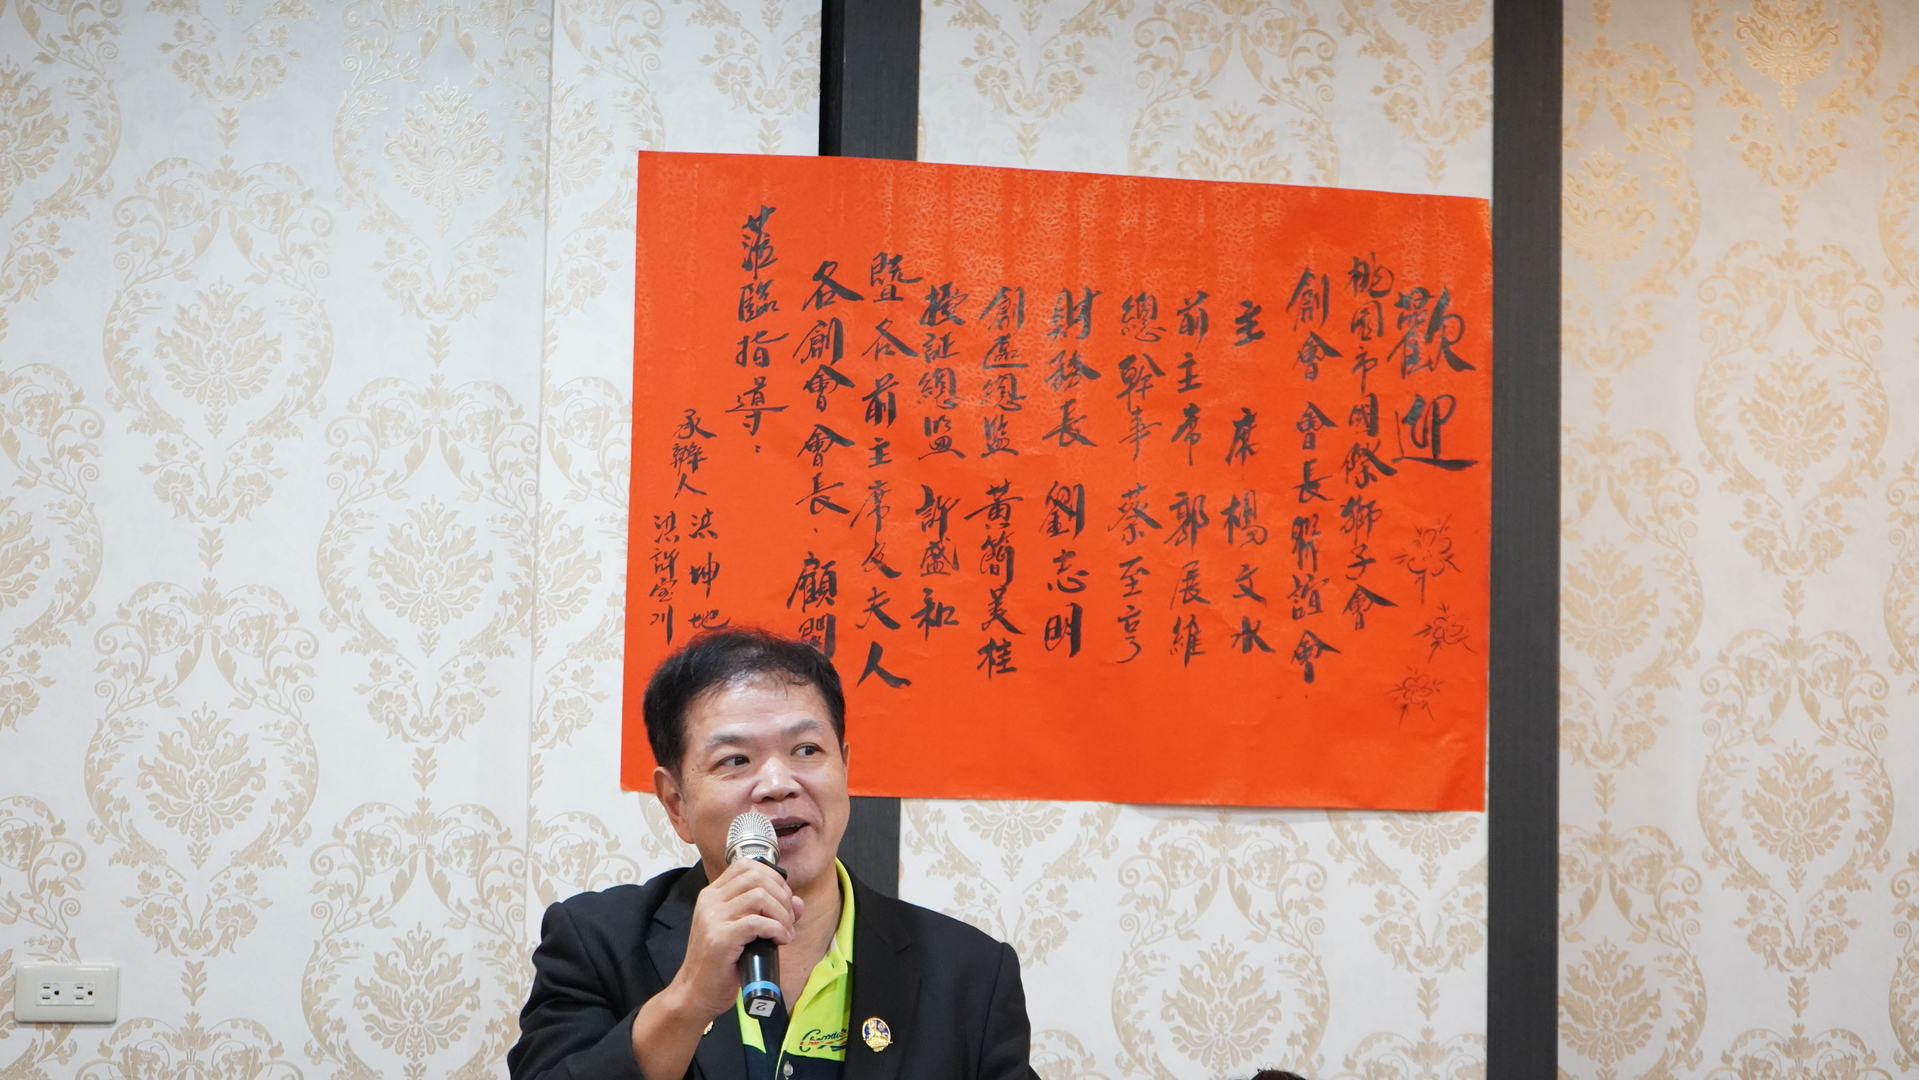 歡迎
桃園市國際獅子會
創會會長聯誼會
主席楊文水
前主席郭展維
總幹事蔡至亨
財務長劉志明
創區總監黃簡美桂
授証總監許盛和
暨各前主席及夫人
各創會會長、顧問
蒞臨指導：
承辦人洪坤地
洪許宝
2